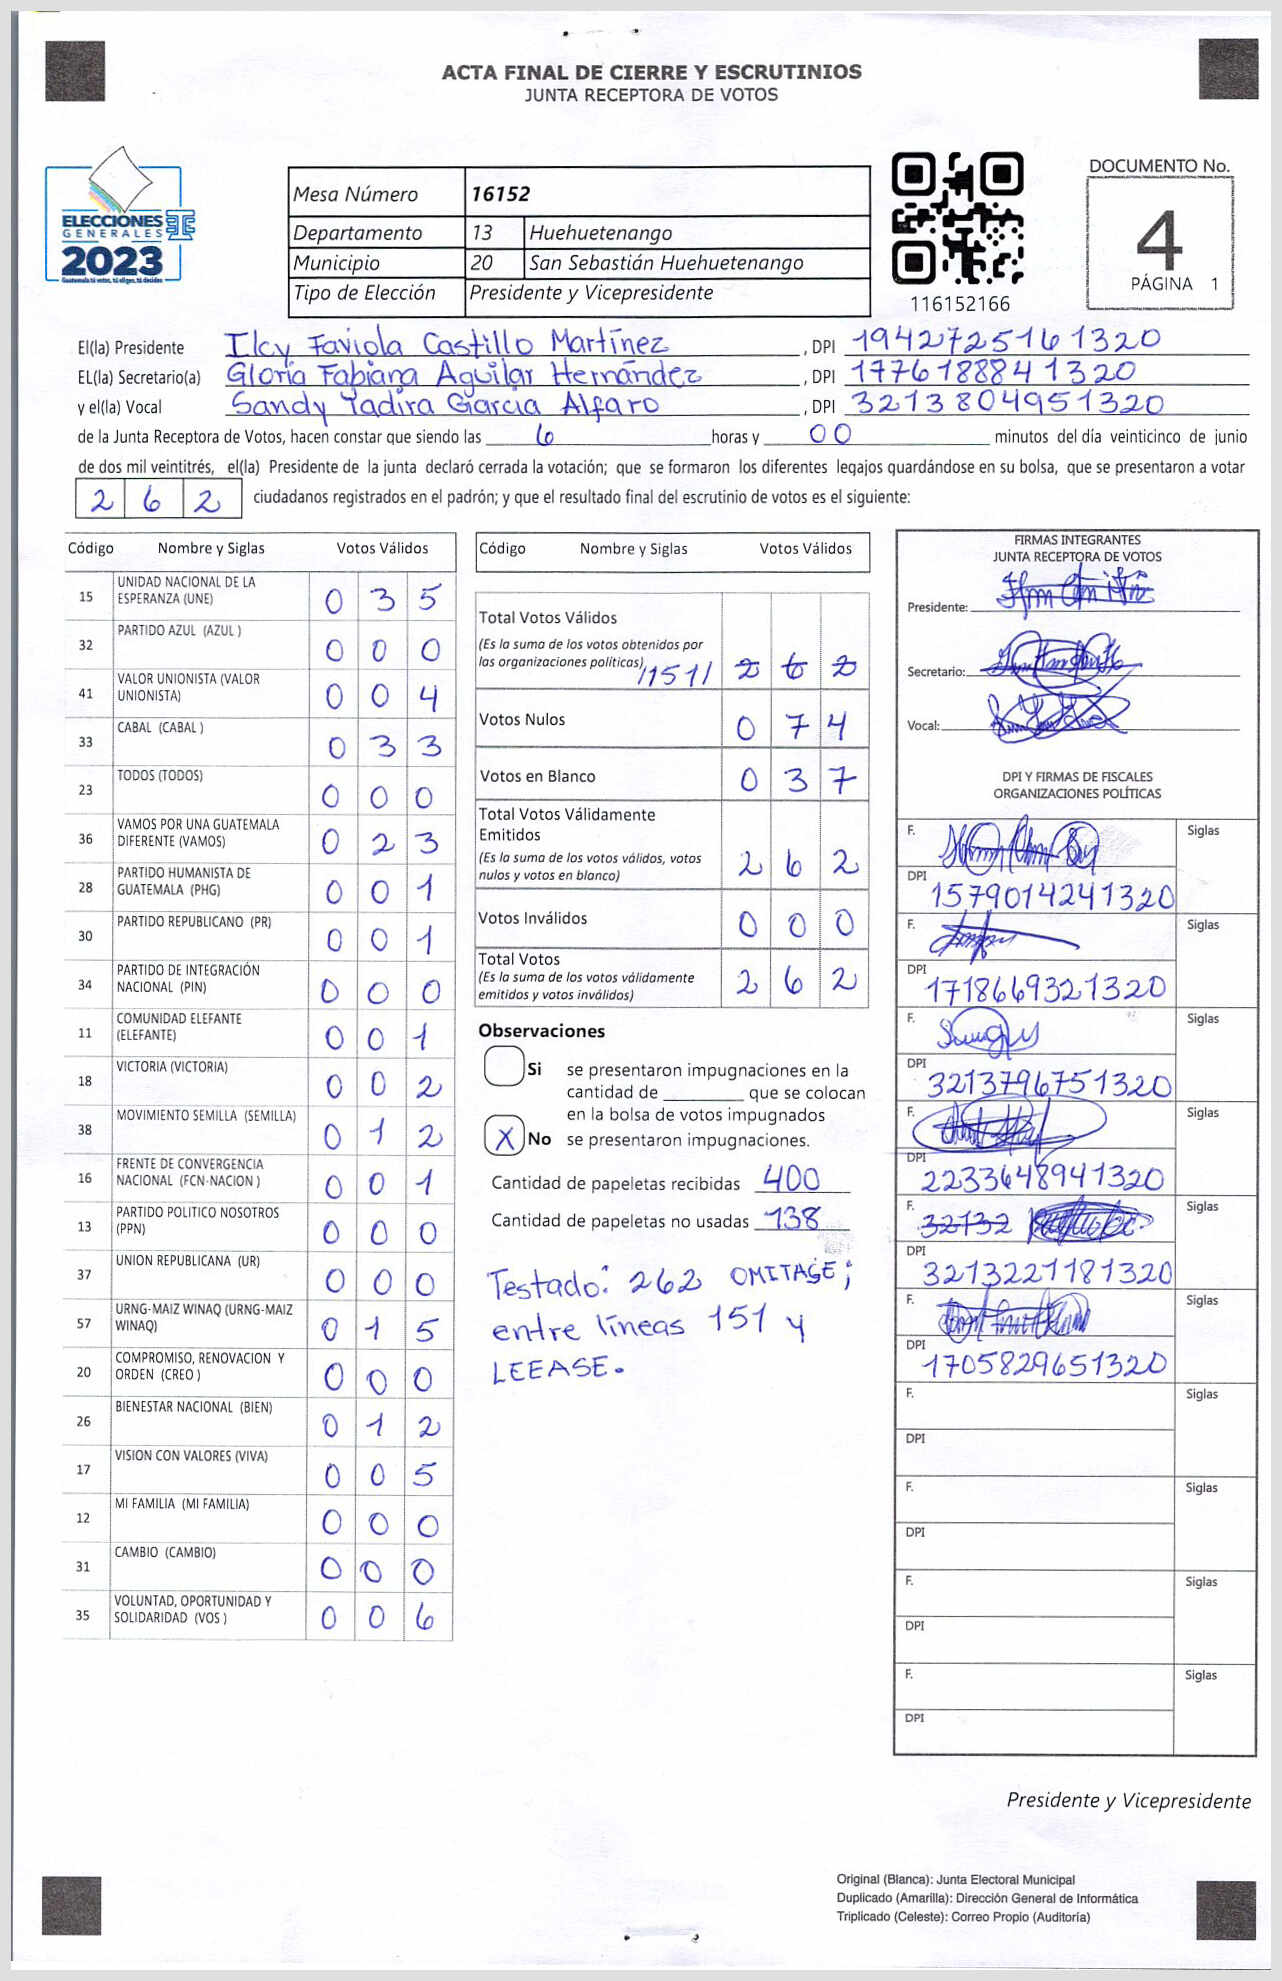 ACTA FINAL DE CIERRE Y ESCRUTINIOS
JUNTA RECEPTORA DE VOTOS
ELECCIONES
GENERALES
2023
Guatemala tú votas, tú eliges, tú decides
Mesa Número 16152
Departamento 13 Huehuetenango
Municipio 20 San Sebastián Huehuetenango
Tipo de Elección Presidente y Vicepresidente
116152166
DOCUMENTO No.
4
PÁGINA 1
El(la) Presidente Ilcy Faviola Castillo Martínez , DPI 1942725161320
EL(la) Secretario(a) Gloria Fabiana Aguilar Hernández , DPI 1776188841320
y el(la) Vocal Sandy Yadira García Alfaro , DPI 3213804951320
de la Junta Receptora de Votos, hacen constar que siendo las 6 horas y 00 minutos del día veinticinco de junio
de dos mil veintitrés, el(la) Presidente de la junta declaró cerrada la votación; que se formaron los diferentes legajos quardándose en su bolsa, que se presentaron a votar
262 ciudadanos registrados en el padrón; y que el resultado final del escrutinio de votos es el siguiente:
Código Nombre y Siglas Votos Válidos
15 UNIDAD NACIONAL DE LA ESPERANZA (UNE) 0 3 5
32 PARTIDO AZUL (AZUL ) 0 0 0
41 VALOR UNIONISTA (VALOR UNIONISTA) 0 0 4
33 CABAL (CABAL ) 0 3 3
23 TODOS (TODOS) 0 0 0
36 VAMOS POR UNA GUATEMALA DIFERENTE (VAMOS) 0 2 3
28 PARTIDO HUMANISTA DE GUATEMALA (PHG) 0 0 1
30 PARTIDO REPUBLICANO (PR) 0 0 1
34 PARTIDO DE INTEGRACIÓN NACIONAL (PIN) 0 0 0
11 COMUNIDAD ELEFANTE (ELEFANTE) 0 0 1
18 VICTORIA (VICTORIA) 0 0 2
38 MOVIMIENTO SEMILLA (SEMILLA) 0 1 2
16 FRENTE DE CONVERGENCIA NACIONAL (FCN-NACION ) 0 0 1
13 PARTIDO POLITICO NOSOTROS (PPN) 0 0 0
37 UNION REPUBLICANA (UR) 0 0 0
57 URNG-MAIZ WINAQ (URNG-MAIZ WINAQ) 0 1 5
20 COMPROMISO, RENOVACION Y ORDEN (CREO ) 0 0 0
26 BIENESTAR NACIONAL (BIEN) 0 1 2
17 VISION CON VALORES (VIVA) 0 0 5
12 MI FAMILIA (MI FAMILIA) 0 0 0
31 CAMBIO (CAMBIO) 0 0 0
35 VOLUNTAD, OPORTUNIDAD Y SOLIDARIDAD (VOS ) 0 0 6
Código Nombre y Siglas Votos Válidos
Total Votos Válidos
(Es la suma de los votos obtenidos por
las organizaciones políticas) /151/ 2 6 2
Votos Nulos 0 7 4
Votos en Blanco 0 3 7
Total Votos Válidamente
Emitidos
(Es la suma de los votos válidos, votos
nulos y votos en blanco) 2 6 2
Votos Inválidos 0 0 0
Total Votos
(Es la suma de los votos válidamente
emitidos y votos inválidos) 2 6 2
Observaciones
Si se presentaron impugnaciones en la
cantidad de ________ que se colocan
en la bolsa de votos impugnados
X No se presentaron impugnaciones.
Cantidad de papeletas recibidas 400
Cantidad de papeletas no usadas 138
Testado: 262 OMITASE;
entre líneas 151 y
LEEASE.
FIRMAS INTEGRANTES
JUNTA RECEPTORA DE VOTOS
Presidente:
Secretario:
Vocal:
DPI Y FIRMAS DE FISCALES
ORGANIZACIONES POLÍTICAS
F. Siglas
DPI 1579014241320
F. Siglas
DPI 1718669321320
F. Siglas
DPI 3213796751320
F. Siglas
DPI 2233648941320
F. 32132 Siglas
DPI 3213221181320
F. Siglas
DPI 1705829651320
F. Siglas
DPI
F. Siglas
DPI
F. Siglas
DPI
F. Siglas
DPI
Presidente y Vicepresidente
Original (Blanca): Junta Electoral Municipal
Duplicado (Amarilla): Dirección General de Informática
Triplicado (Celeste): Correo Propio (Auditoría)